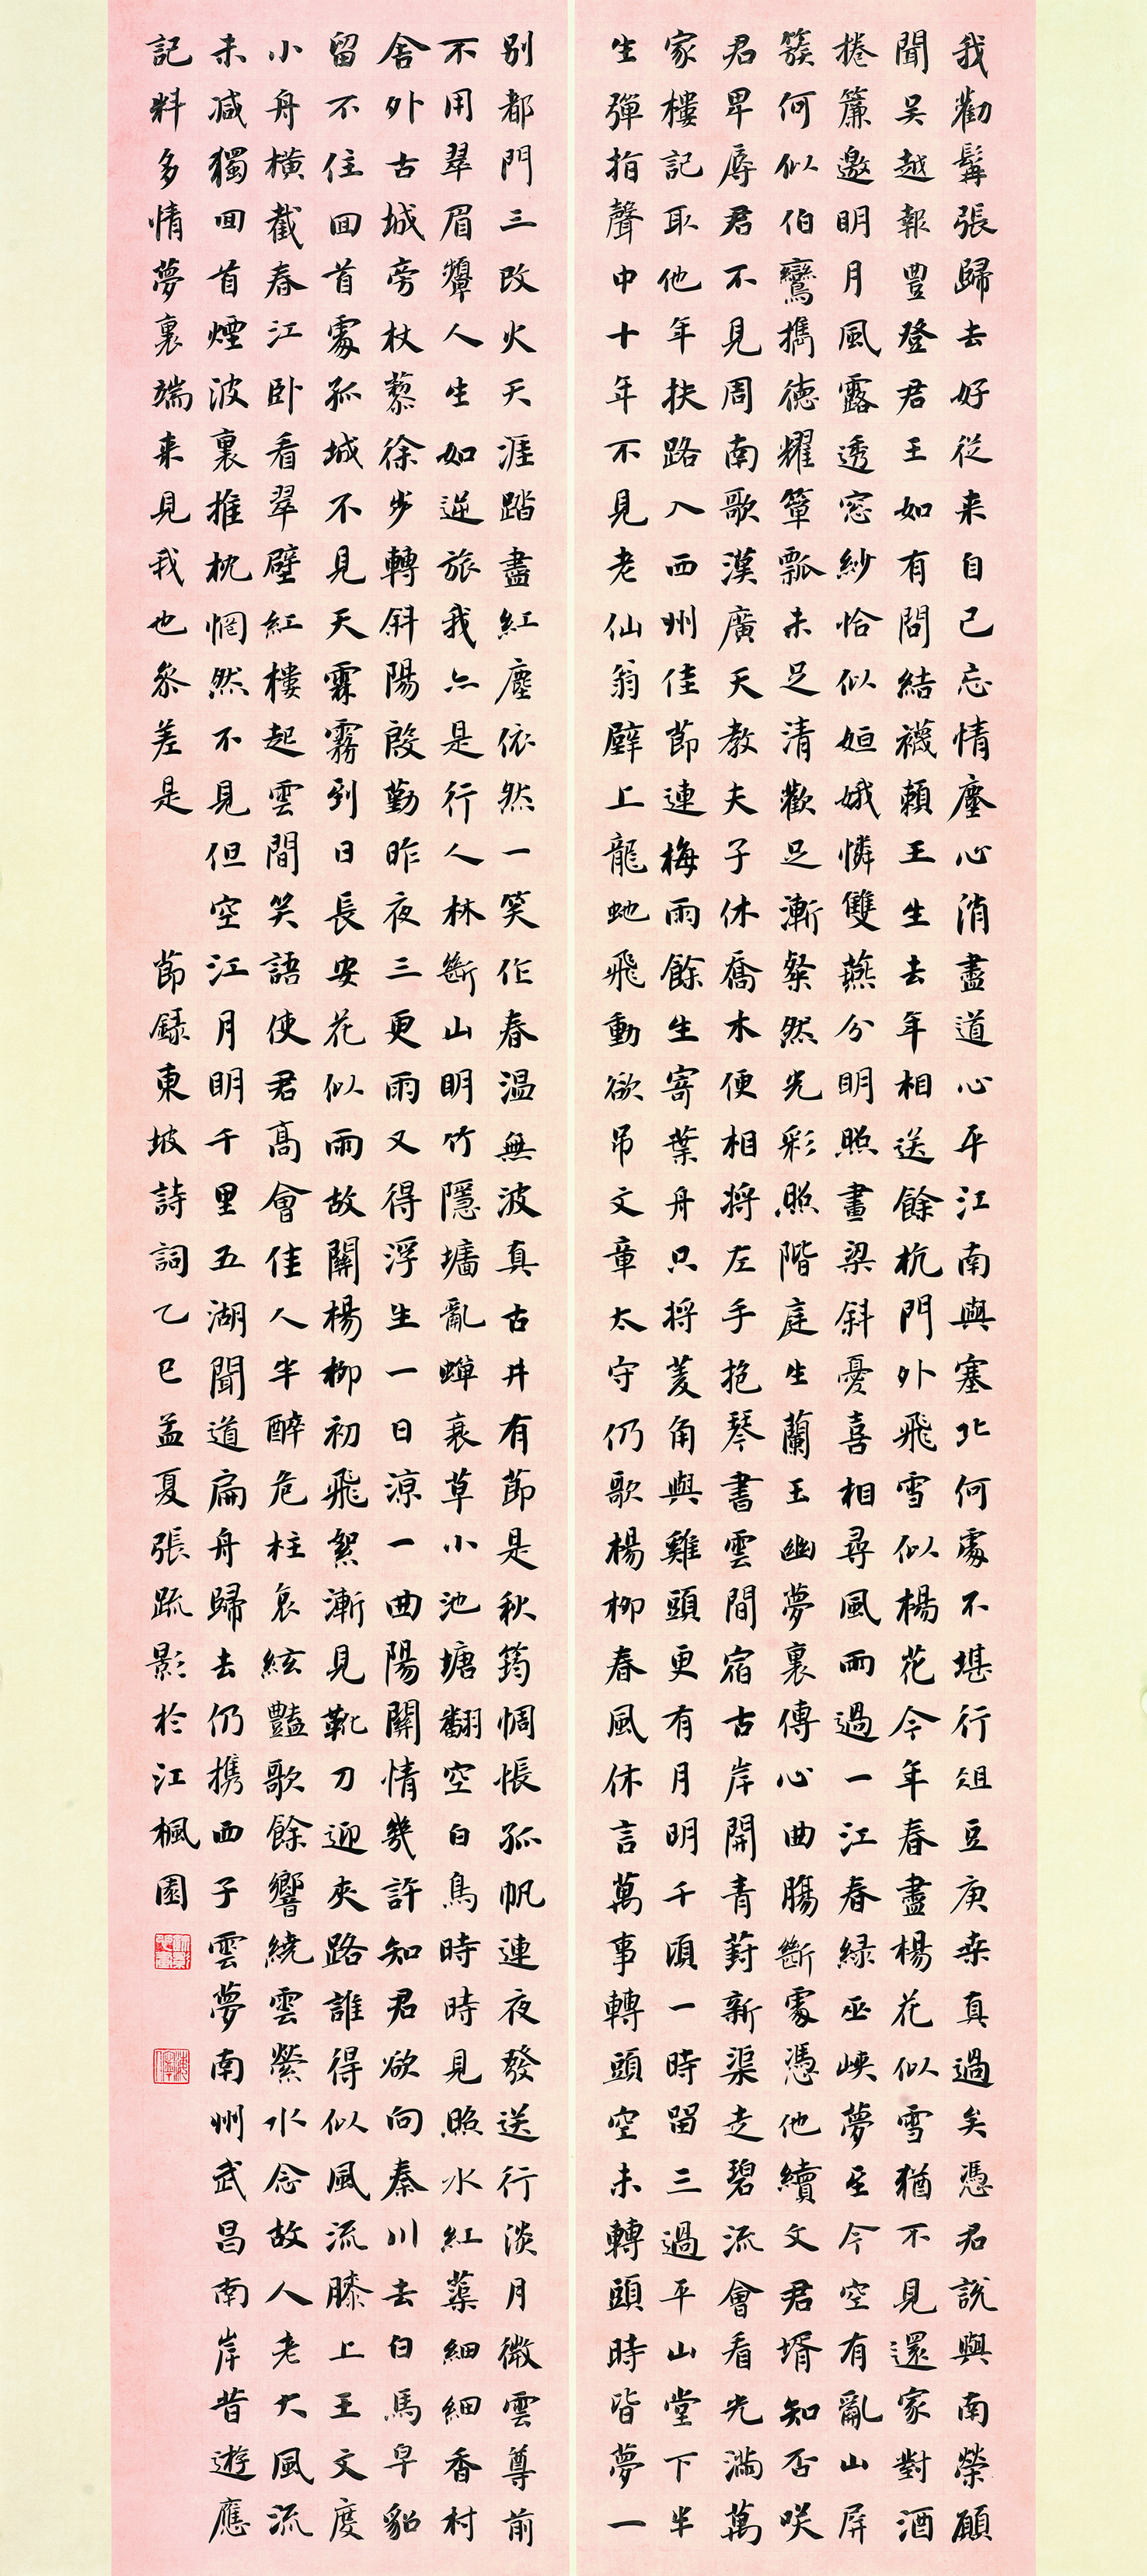 我勸髯張歸去好從来自己忘情塵心消盡道心平江南與塞北何處不堪行俎豆庚桒真過矣憑君說與南榮願
聞吴越報豐登君王如有問結襪賴王生去年相送餘杭門外飛雪似楊花今年春盡楊花似雪猶不見還家對酒
捲簾邀明月風露透窓紗恰似姮娥憐雙燕分明照畫梁斜憂喜相尋風雨過一江春緑巫峽夢至今空有亂山屏
簇何似伯鸞攜德耀簞瓢未足清歡足漸粲然光彩照階庭生蘭玉幽夢裏傳心曲腸斷處憑他續文君壻知否咲
君卑辱君不見周南歌漢廣天教夫子休喬木便相將左手抱琴書雲間宿古岸開青葑新渠走碧流會看光滿萬
家樓記取他年扶路入西州佳節連梅雨餘生寄葉舟只將菱角與雞頭更有月明千頃一時留三過平山堂下半
生彈指聲中十年不見老仙翁壁上龍虵飛動欲吊文章太守仍歌楊柳春風休言萬事轉頭空未轉頭時皆夢一
别都門三改火天涯踏盡紅塵依然一笑作春温無波真古井有節是秋筠惆悵孤帆連夜發送行淡月微雲尊前
不用翠眉顰人生如逆旅我亦是行人林斷山明竹隱墻亂蟬衰草小池塘翻空白鳥時時見照水紅蕖細細香村
舍外古城旁杖藜徐步轉斜陽殷勤昨夜三更雨又得浮生一日涼一曲陽關情幾許知君欲向秦川去白馬皁貂
留不住回首處孤城不見天霖霧到日長安花似雨故關楊柳初飛絮漸見靴刀迎夾路誰得似風流膝上王文度
小舟橫截春江卧看翠壁紅樓起雲間笑語使君高會佳人半醉危柱哀絃豔歌餘響繞雲縈水念故人老大風流
未减獨回首煙波裏推枕惘然不見但空江月明千里五湖聞道扁舟歸去仍携西子雲夢南州武昌南岸昔遊應
記料多情夢裏端来見我也參差是 節録東坡詩詞乙巳孟夏張疏影於江楓園